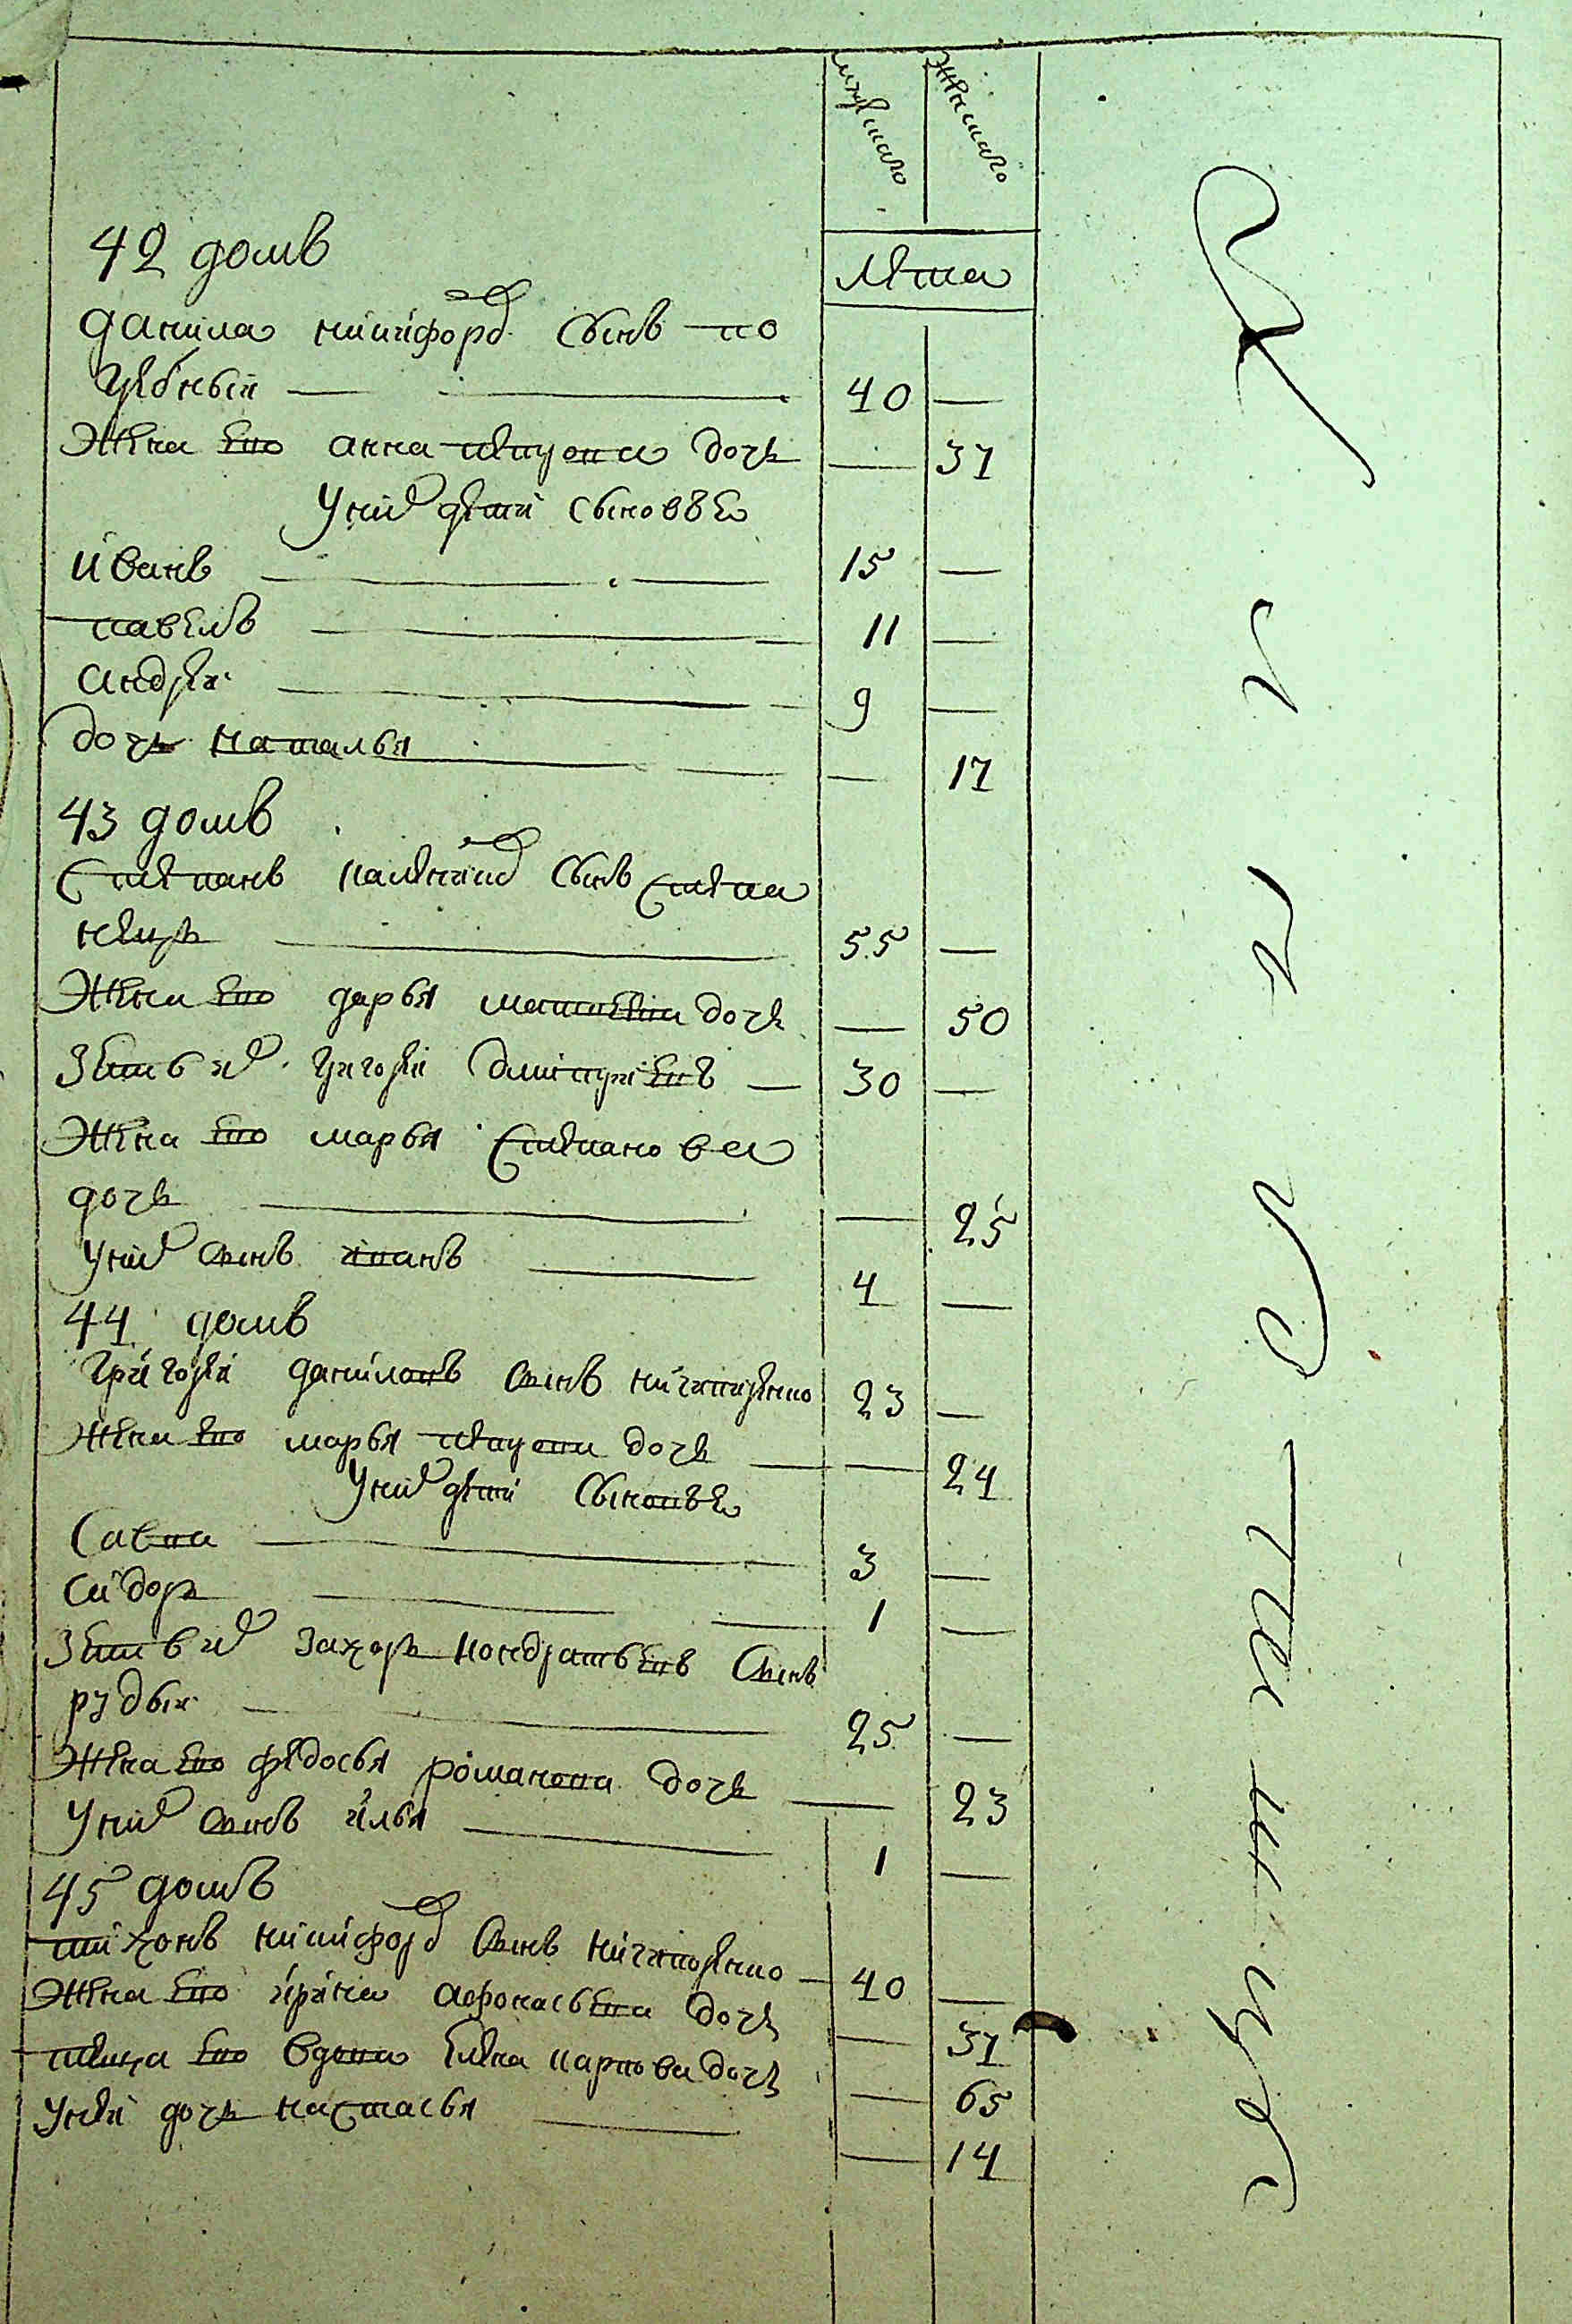 мужеска женска
лета
42 домъ
данила никифоровъ сынъ по
гребный — 40 —
жена ево анна петрова дочь — 37
у них дети сыновье
иванъ — 15 —
павелъ — 11 —
андрей — 9 —
дочь наталья — 17
43 домъ
степанъ калениковъ сынъ степа
нецъ — 55 —
жена ево дарья матвеева дочь — 50
зять их григорей дмитриевъ — 30 —
жена ево марья степанова
дочь — 25
у них сынъ иванъ — 4 —
44 домъ
григорей даниловъ сынъ ничипоренко 23 —
жена ево марья петрова дочь — 24
у них дети сыновье
савва — 3 —
сидоръ — 1 —
зять их захаръ кондратьевъ сынъ
рудый — 25 —
жена ево федосья романова дочь — 23
у них сынъ илья — 1 —
45 домъ
тихонъ никифоровъ сынъ ничипоренко — 40 —
жена ево ирина афонасьева дочь — 37
теща ево вдова елена карпова дочь — 65
у ней дочь настасья — 14